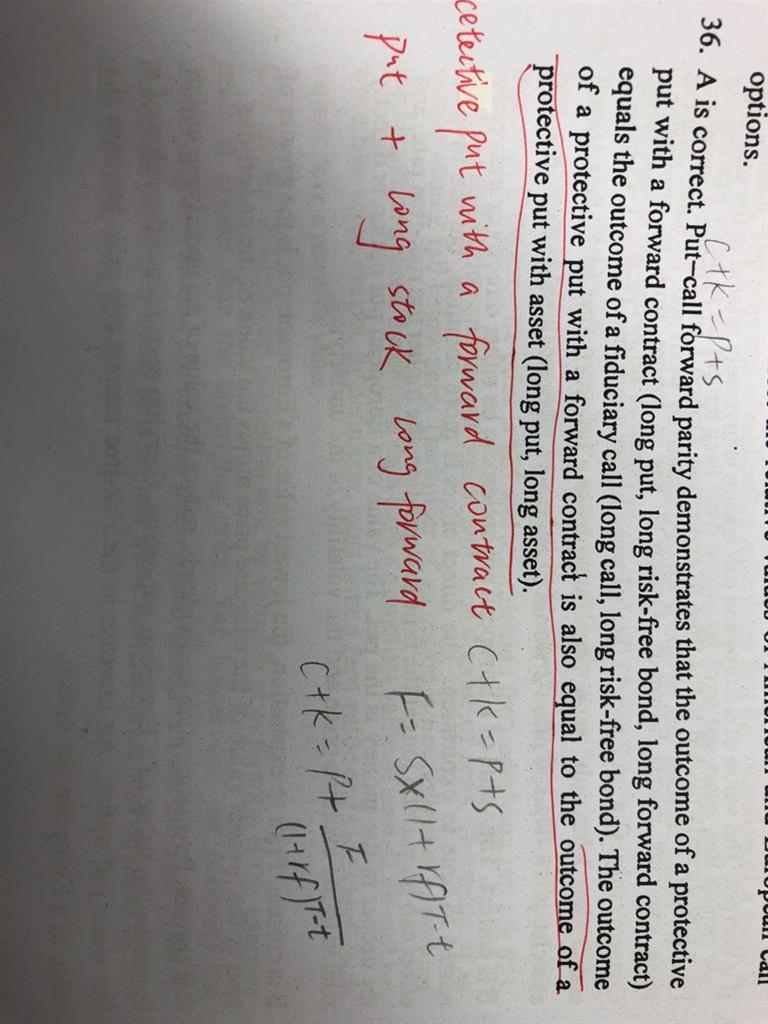 options.
C+K=P+S
36. A is correct. Put–call forward parity demonstrates that the outcome of a protective
put with a forward contract (long put, long risk-free bond, long forward contract)
equals the outcome of a fiduciary call (long call, long risk-free bond). The outcome
of a protective put with a forward contract is also equal to the outcome of a
protective put with asset (long put, long asset).
cetective put with a forward contract C+K=P+S
put + long stock long forward F=S×(1+rf)T-t
C+K=P+ F
(1+rf)T-t